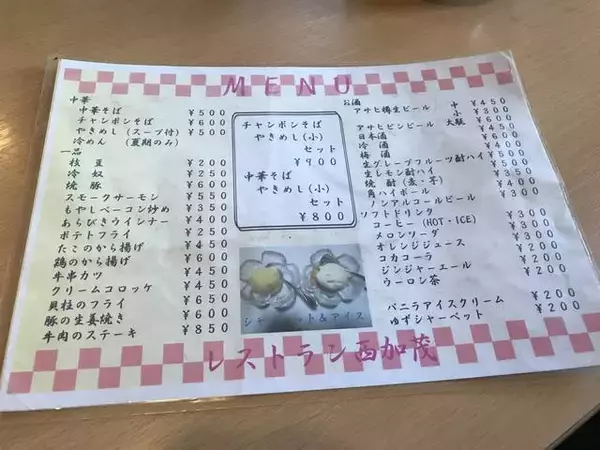 MENU
中華
中華そば ¥500
チャンポンそば ¥600
やきめし(スープ付) ¥500
冷めん (夏期のみ)
一品
枝豆 ¥200
冷奴 ¥250
焼豚
スモークサーモン
もやしベーコン炒め
あらびきウインナー
ポテトフライ ¥250
たこのから揚げ ¥450
鶏のから揚げ
牛串カツ ¥450
クリームコロッケ ¥450
貝柱のフライ ¥650
豚の生姜焼き ¥600
牛肉のステーキ ¥850
チャンポンそば
やきめし(小)
セット
¥900
中華そば
やきめし(小)
セット
¥800
シャーベット&アイス
お酒
アサヒ樽生ビール 中 ¥450
小 ¥300
アサヒビンビール 大瓶 ¥600
日本酒
冷酒
梅酒
生グレープフルーツ酎ハイ
生レモン酎ハイ
焼酎(麦・芋)
角ハイボール
ノンアルコールビール
ソフトドリンク
コーヒー(HOT・ICE) ¥300
メロンソーダ
オレンジジュース ¥200
コカコーラ ¥200
ジンジャーエール ¥200
ウーロン茶 ¥200
バニラアイスクリーム ¥200
ゆずシャーベット ¥200
レストラン西加茂